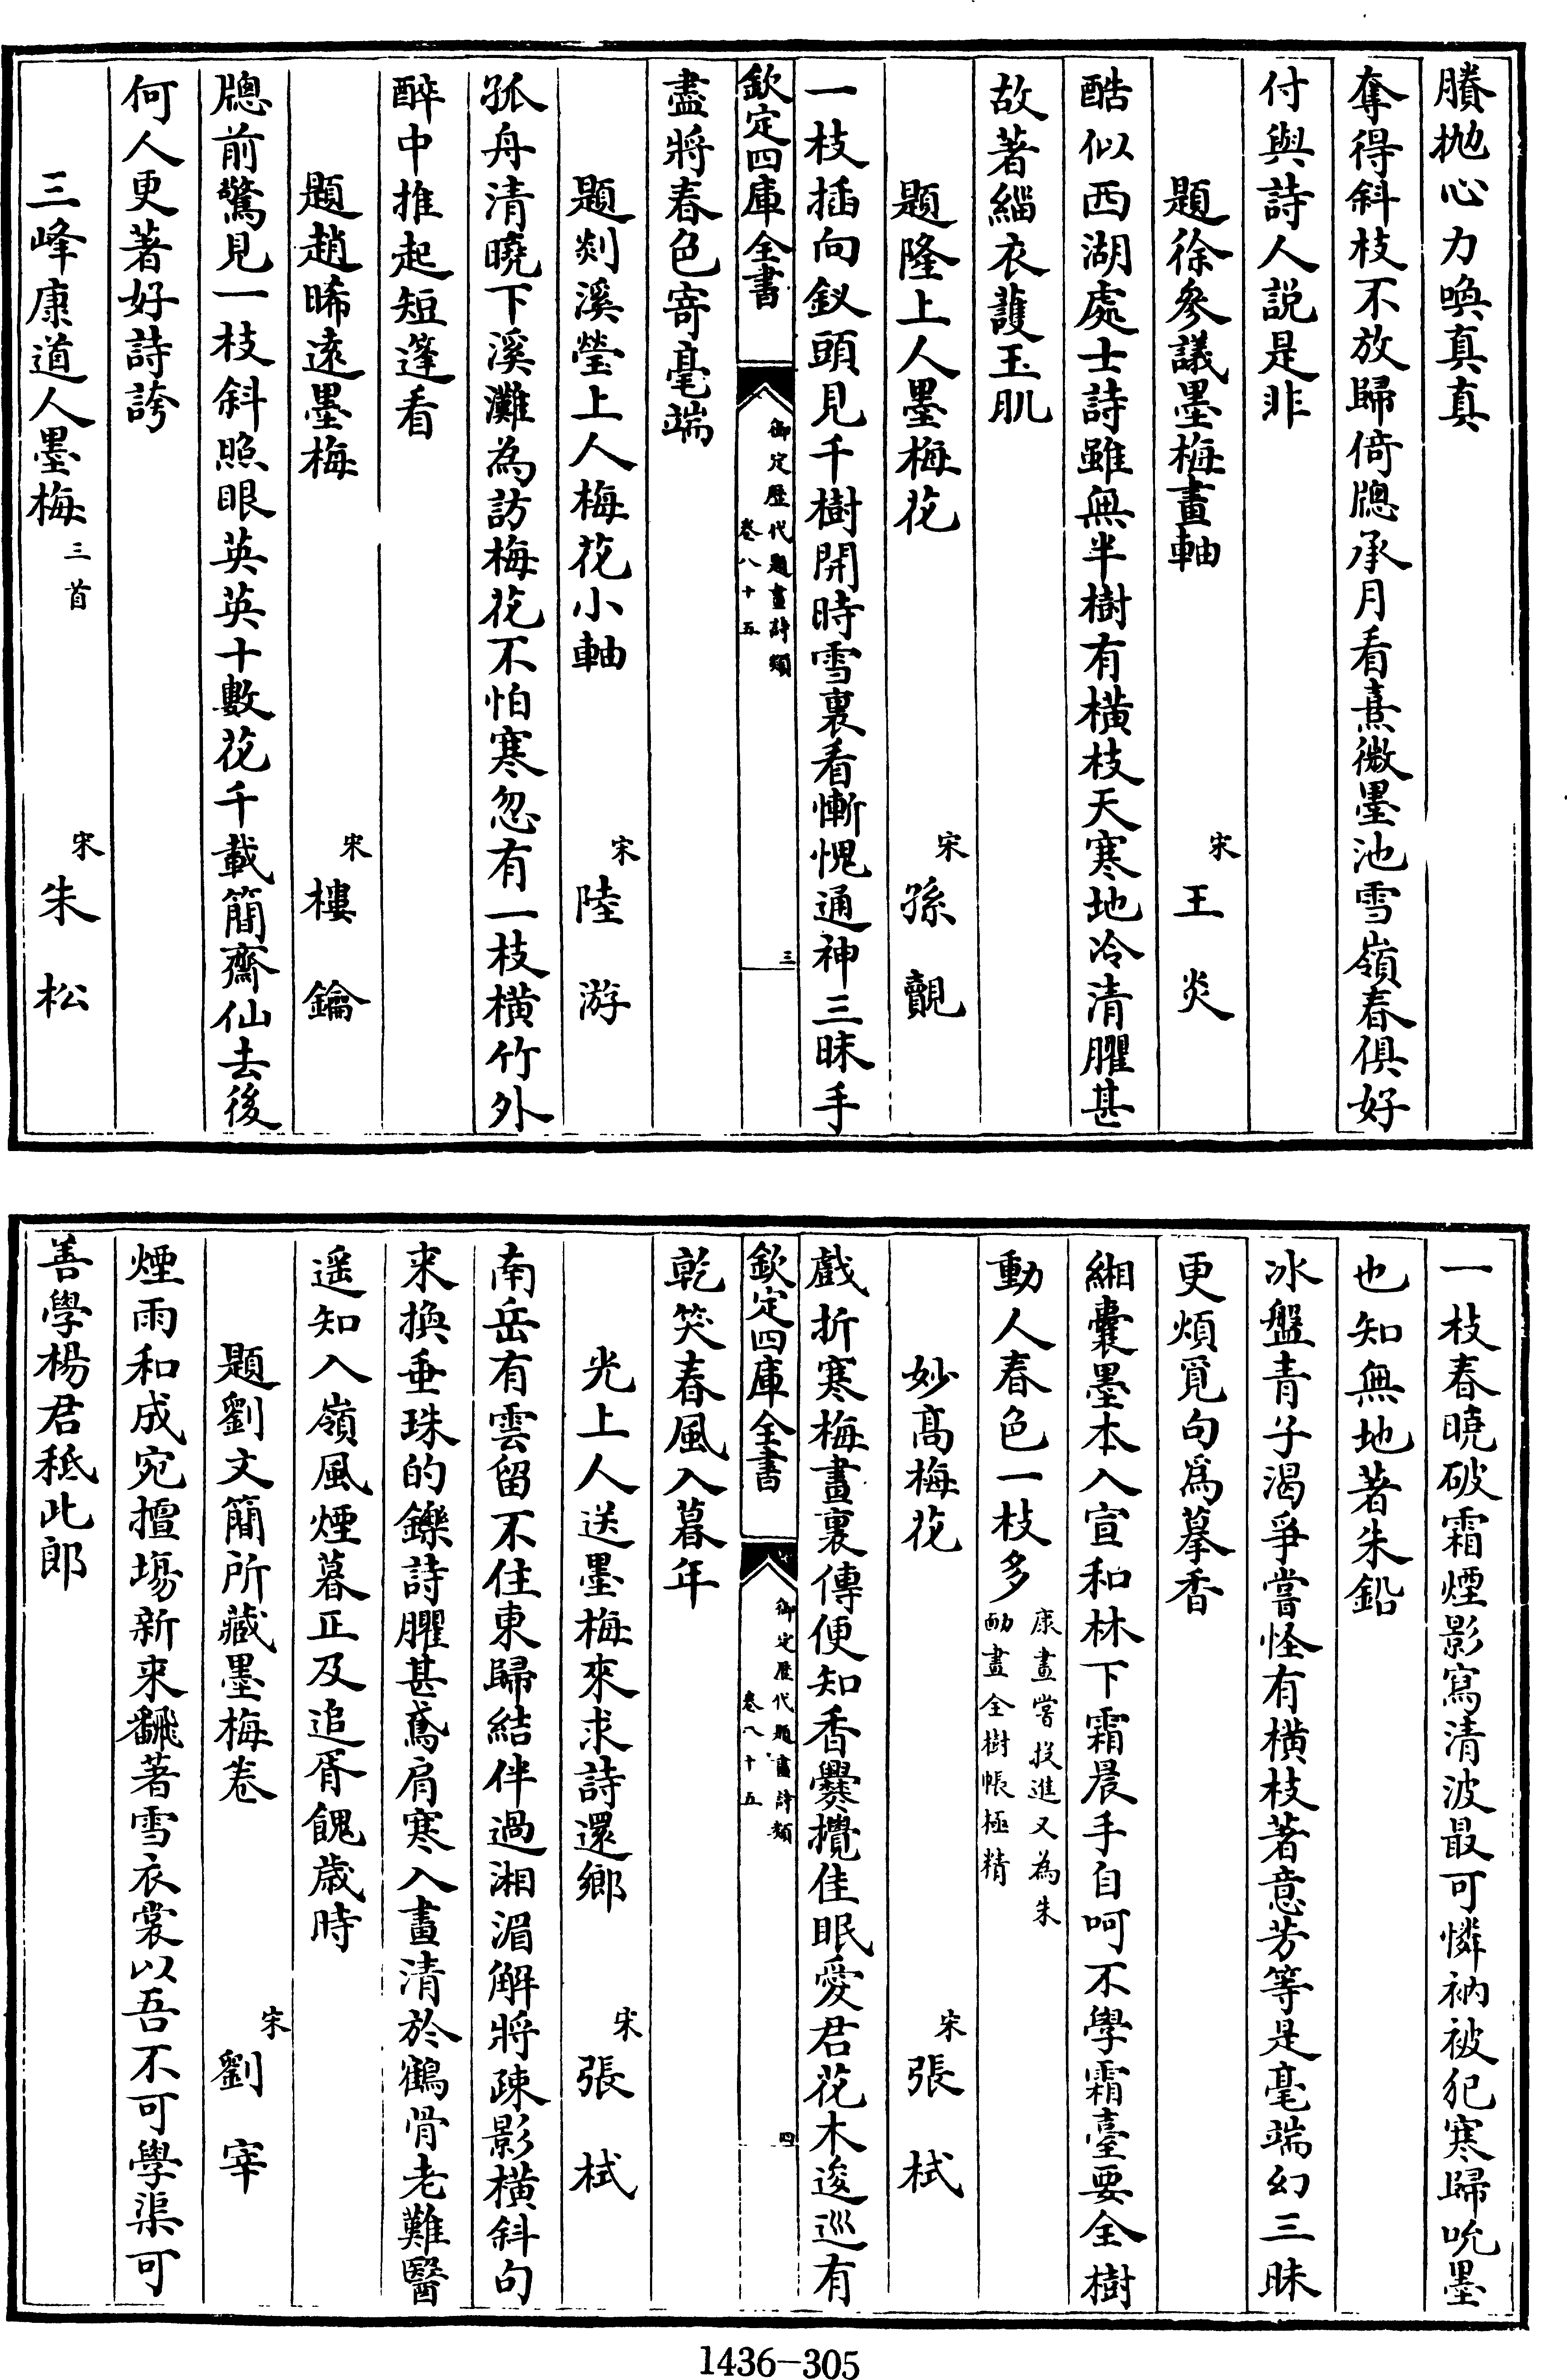 賸抛心力喚真真
奪得斜枝不放歸倚牕承月看熹微墨池雪嶺春俱好
付與詩人説是非
題徐參議墨梅畫軸 宋王炎
酷似西湖處士詩雖無半樹有橫枝天寒地冷清臞甚
故著緇衣護玉肌
題隆上人墨梅花 宋孫覿
一枝插向釵頭見千樹開時雪裏看慚愧通神三昧手
欽定四庫全書 御定歴代題畫詩類 卷八十五 三
盡將春色寄毫端
題剡溪瑩上人梅花小軸 宋陸游
孤舟清曉下溪灘為訪梅花不怕寒忽有一枝橫竹外
醉中推起短篷看
題趙晞遠墨梅 宋樓鑰
牕前驚見一枝斜照眼英英十數花千載簡齋仙去後
何人更著好詩誇
三峰康道人墨梅三首 宋朱松
一枝春曉破霜煙影寫清波最可憐衲被犯寒歸吮墨
也知無地著朱鉛
冰盤青子渴爭嘗怪有橫枝著意芳等是毫端幻三昧
更煩覓句爲摹香
緗囊墨本入宣和林下霜晨手自呵不學霜臺要全樹
動人春色一枝多康畫嘗投進又為朱
勔畫全樹帳極精
妙髙梅花 宋張栻
戲折寒梅畫裏傳便知香爨攪佳眠愛君花木逡巡有
欽定四庫全書 御定歴代題畫詩類 卷八十五 四
乾笑春風入暮年
光上人送墨梅來求詩還鄉 宋張栻
南岳有雲留不住東歸結伴過湘湄解將疎影橫斜句
来換垂珠的皪詩臞甚鳶肩寒入畫清於鶴骨老難醫
遥知入嶺風煙暮正及追胥餽歳時
題劉文簡所藏墨梅卷 宋劉宰
煙雨和成宛擅塲新来飜著雪衣裳以吾不可學渠可
善學楊君秖此郎
1436-305